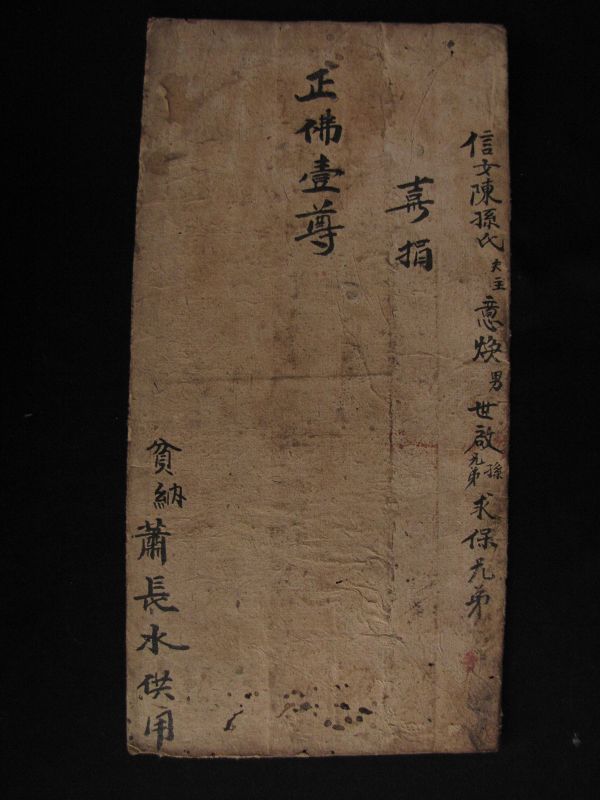 信女陳孫氏夫主意煥男世啟孫兄弟求保兄弟
喜捐
正佛壹尊
貧納蕭長水供用